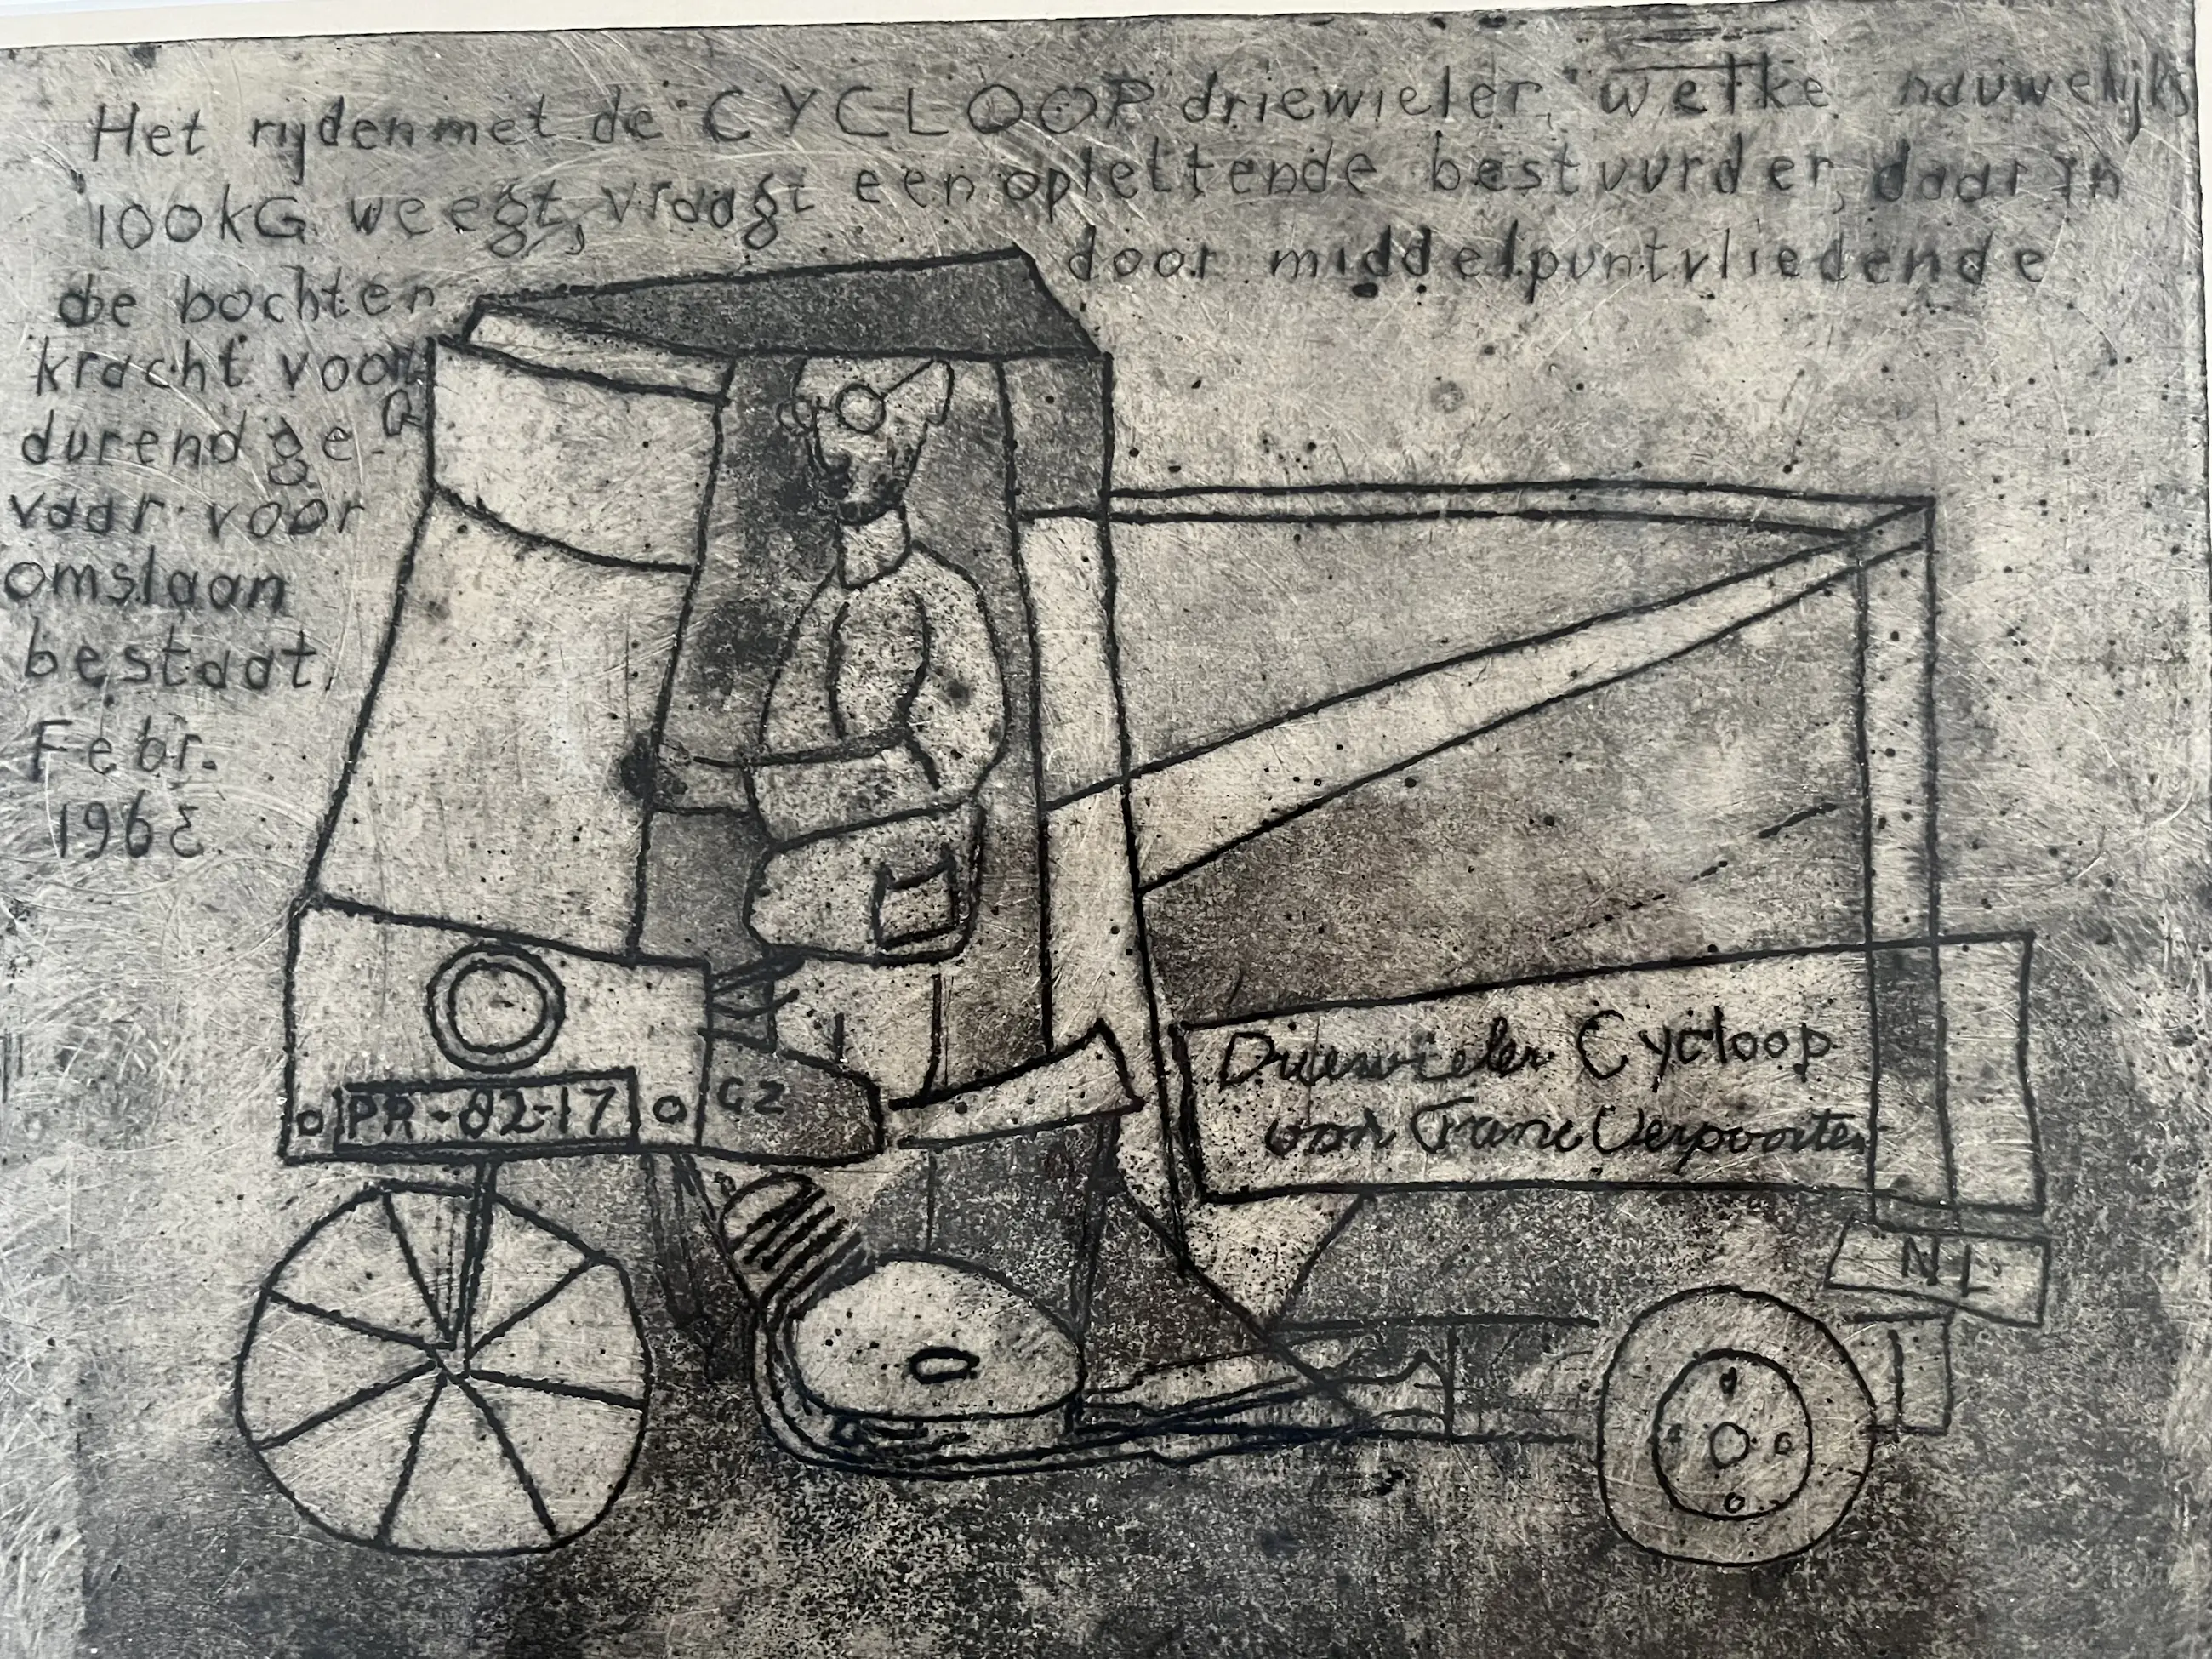 Het rijden met de CYCLOOP driewieler, welke nauwelijks
100KG weegt, vraagt een oplettende bestuurder, daar in
de bochten door middelpuntvliedende
kracht voort
durend ge
vaar voor
omslaan
bestaat.
Febr.
1963
Driewieler Cycloop
van Frans Verpoorten
PR-82-17
GZ
NL